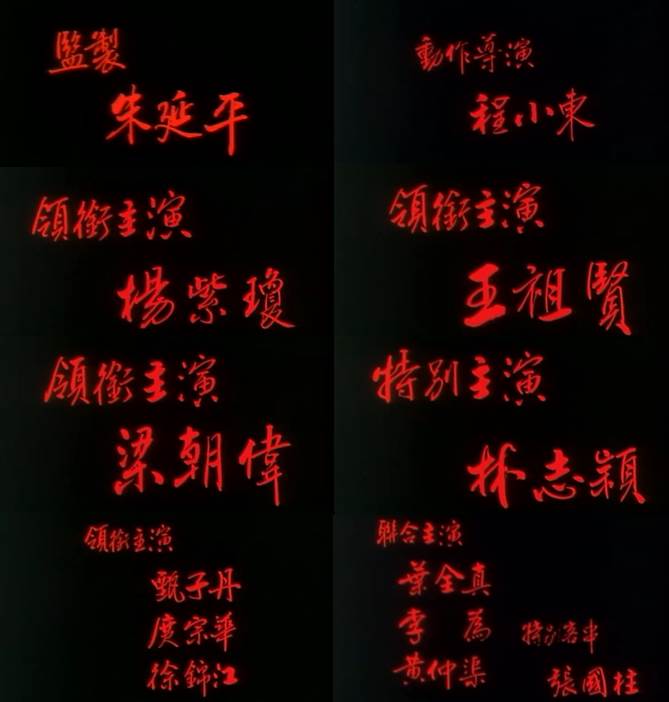 監製
朱延平
動作導演
程小東
領銜主演
楊紫瓊
領銜主演
王祖賢
領銜主演
梁朝偉
特別主演
林志穎
領銜主演
甄子丹
庹宗華
徐錦江
聯合主演
葉全真
李為
黃仲渠
特別客串
張國柱